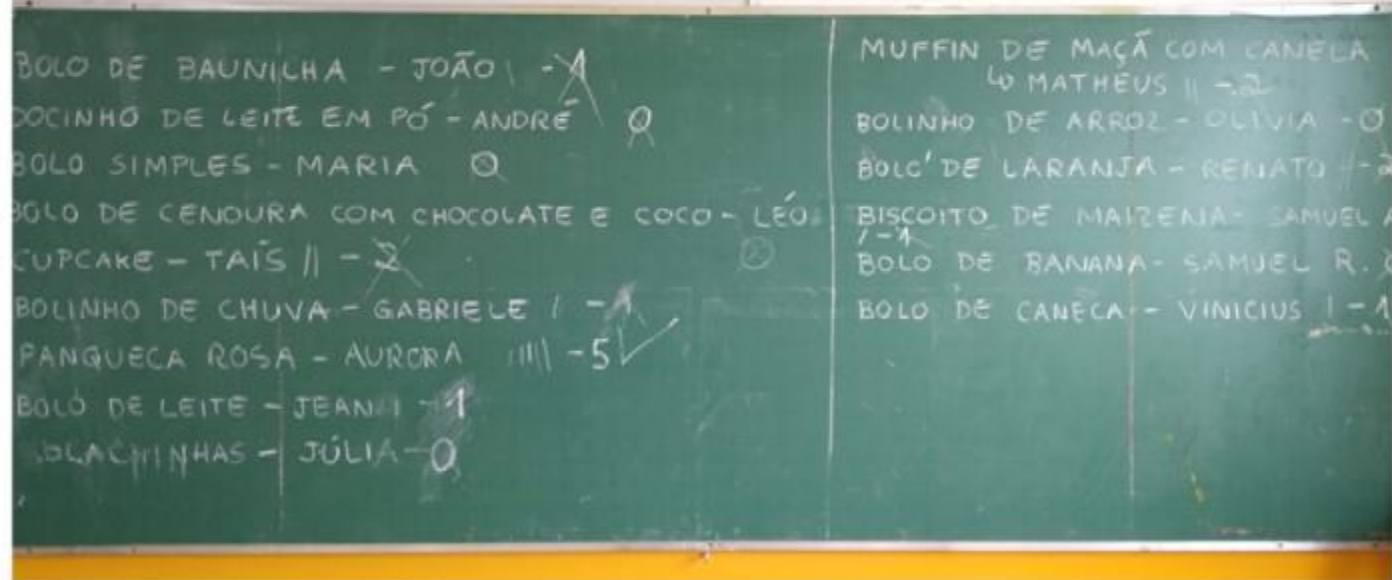 BOLO DE BAUNILHA - JOÃO | - 1
DOCINHO DE LEITE EM PÓ - ANDRÉ 0
BOLO SIMPLES - MARIA 0
BOLO DE CENOURA COM CHOCOLATE E COCO - LÉO
0
CUPCAKE - TAÍS || - 2
BOLINHO DE CHUVA - GABRIELE | - 1
PANQUECA ROSA - AURORA ||||| - 5
BOLO DE LEITE - JEAN | - 1
BOLACHINHAS - JÚLIA - 0
MUFFIN DE MAÇÃ COM CANELA
↳ MATHEUS || - 2
BOLINHO DE ARROZ - OLIVIA - 0
BOLO DE LARANJA - RENATO || - 2
BISCOITO DE MAIZENA - SAMUEL
| - 1
BOLO DE BANANA - SAMUEL R.
BOLO DE CANECA - VINICIUS | - 1